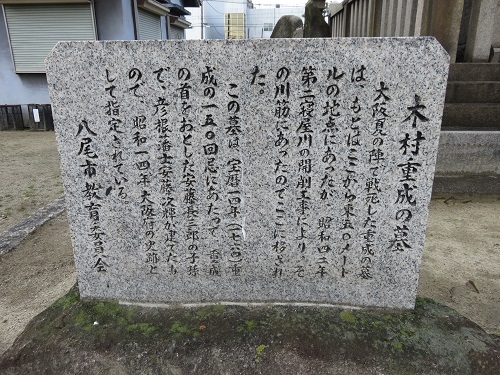 木村重成の墓
大阪夏の陣で戦死した重成の墓
は、もとはここから東五〇メート
ルの地点にあったが 昭和四二年
第二寝屋川の開削工事により、そ
の川筋にあったのでここに移され
た。
この墓は、宝暦一四年(一七六四)重
成の一五〇回忌にあたって 重成
の首をおとした安藤長三郎の子孫
で、彦根藩士安藤次輝が建てたも
ので、昭和一四年大阪府の史跡と
して指定されている。
八尾市教育委員会